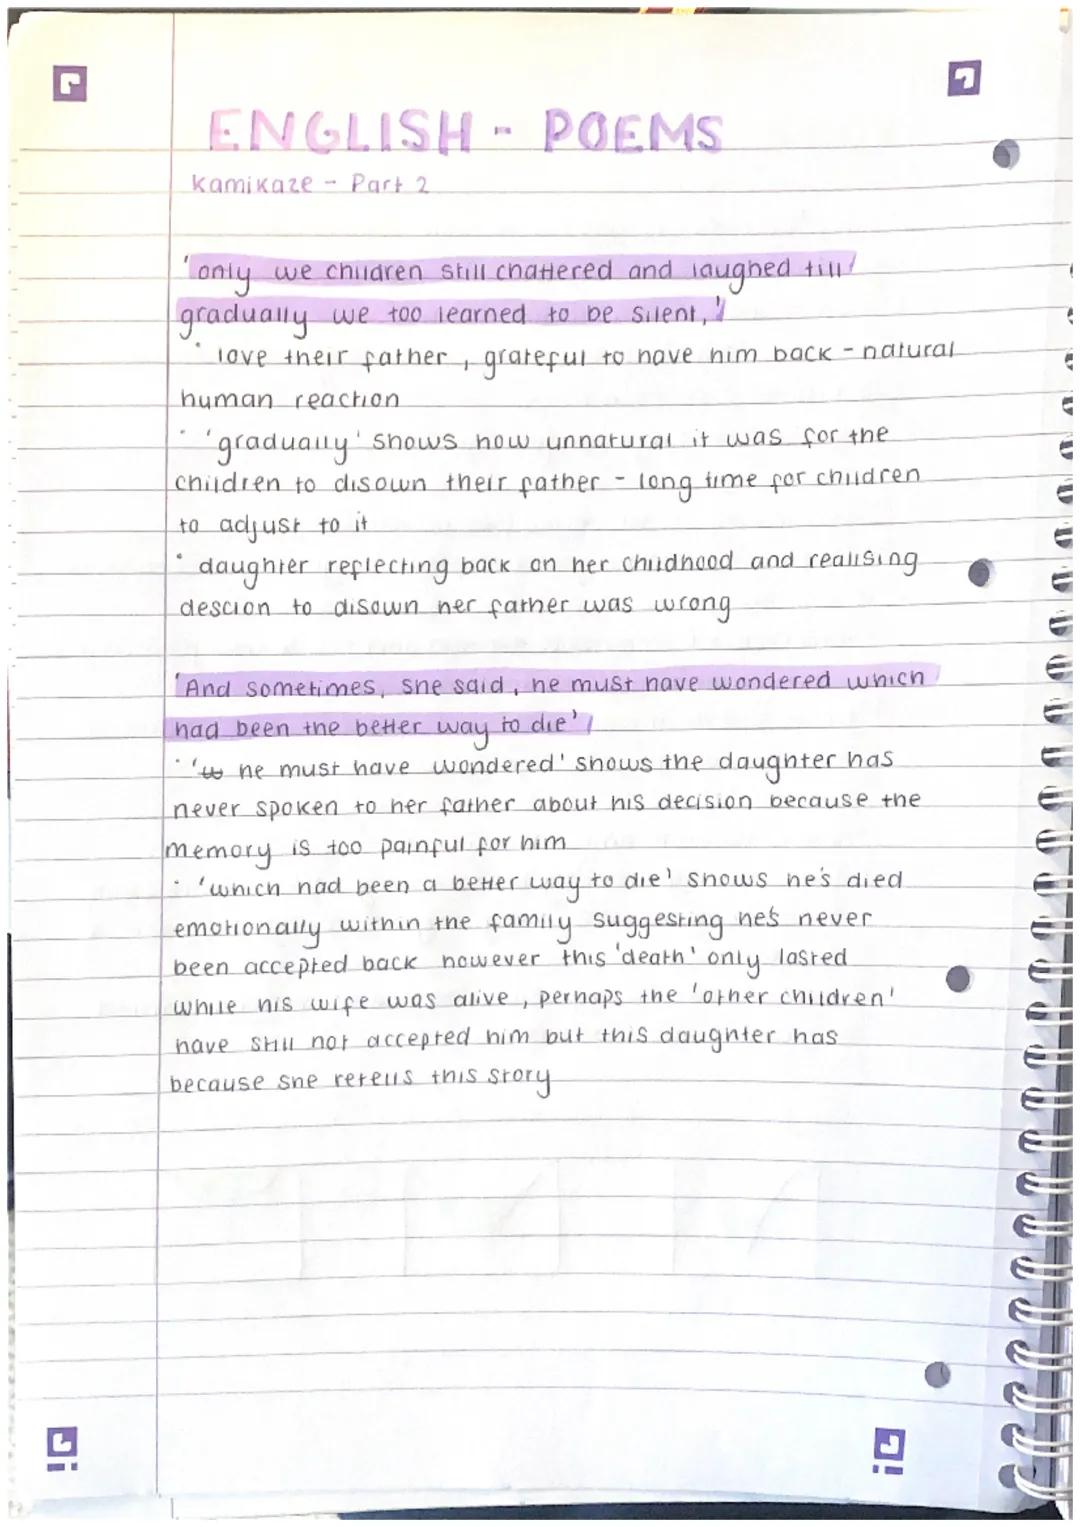 ENGLISH - POEMS
Kamikaze - Part 2
'only we children still chattered and laughed till
gradually we too learned to be silent,'
• love their father, grateful to have him back - natural
human reaction
• 'gradually' shows how unnatural it was for the
children to disown their father - long time for children
to adjust to it
• daughter reflecting back on her childhood and realising
descion to disown her father was wrong
'And sometimes, she said, he must have wondered which
had been the better way to die'
• 'he must have wondered' shows the daughter has
never spoken to her father about his decision because the
memory is too painful for him
• 'which had been a better way to die' shows he's died
emotionally within the family suggesting he's never
been accepted back however this 'death' only lasted
while his wife was alive, perhaps the 'other children'
have still not accepted him but this daughter has
because she retells this story